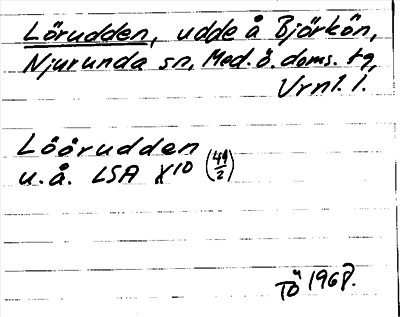 Lörudden, udde å Björkön,
Njurunda sn, Med. ö. doms. tg,
Vrnl. l.
Löörudden
u.å. LSA X10 (49/2)
TÖ 1968.